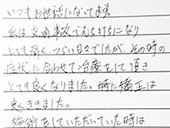 いつもお世話になってます。
私は交通事故でむちうちになり
とても痛く、つらい日々でしたが、その時の
症状に合わせて治療をして頂き
とても良くなりました。特に矯正は
良くききました。
施術をしていただいていた時は